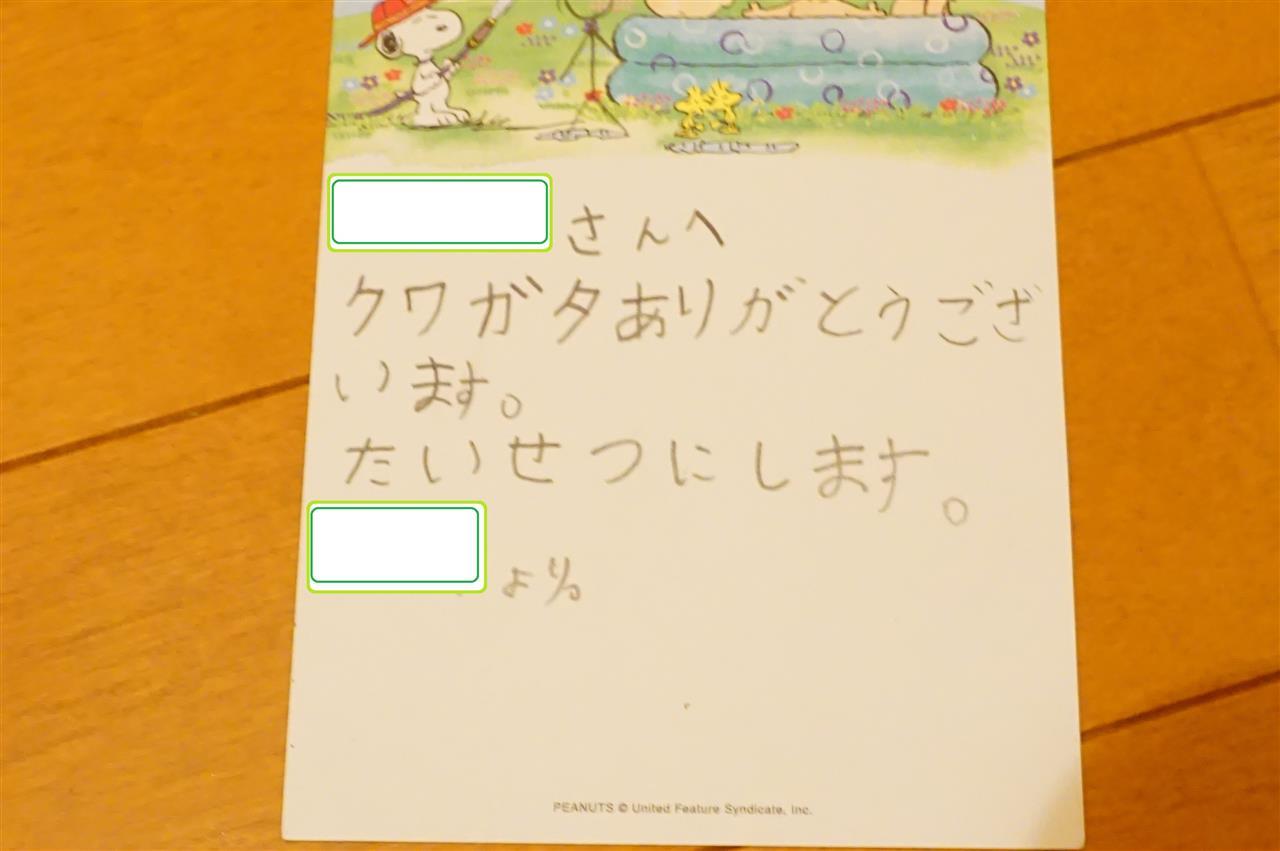 さんへ
クワガタありがとうござ
います。
たいせつにします。
より。
PEANUTS © United Feature Syndicate, Inc.